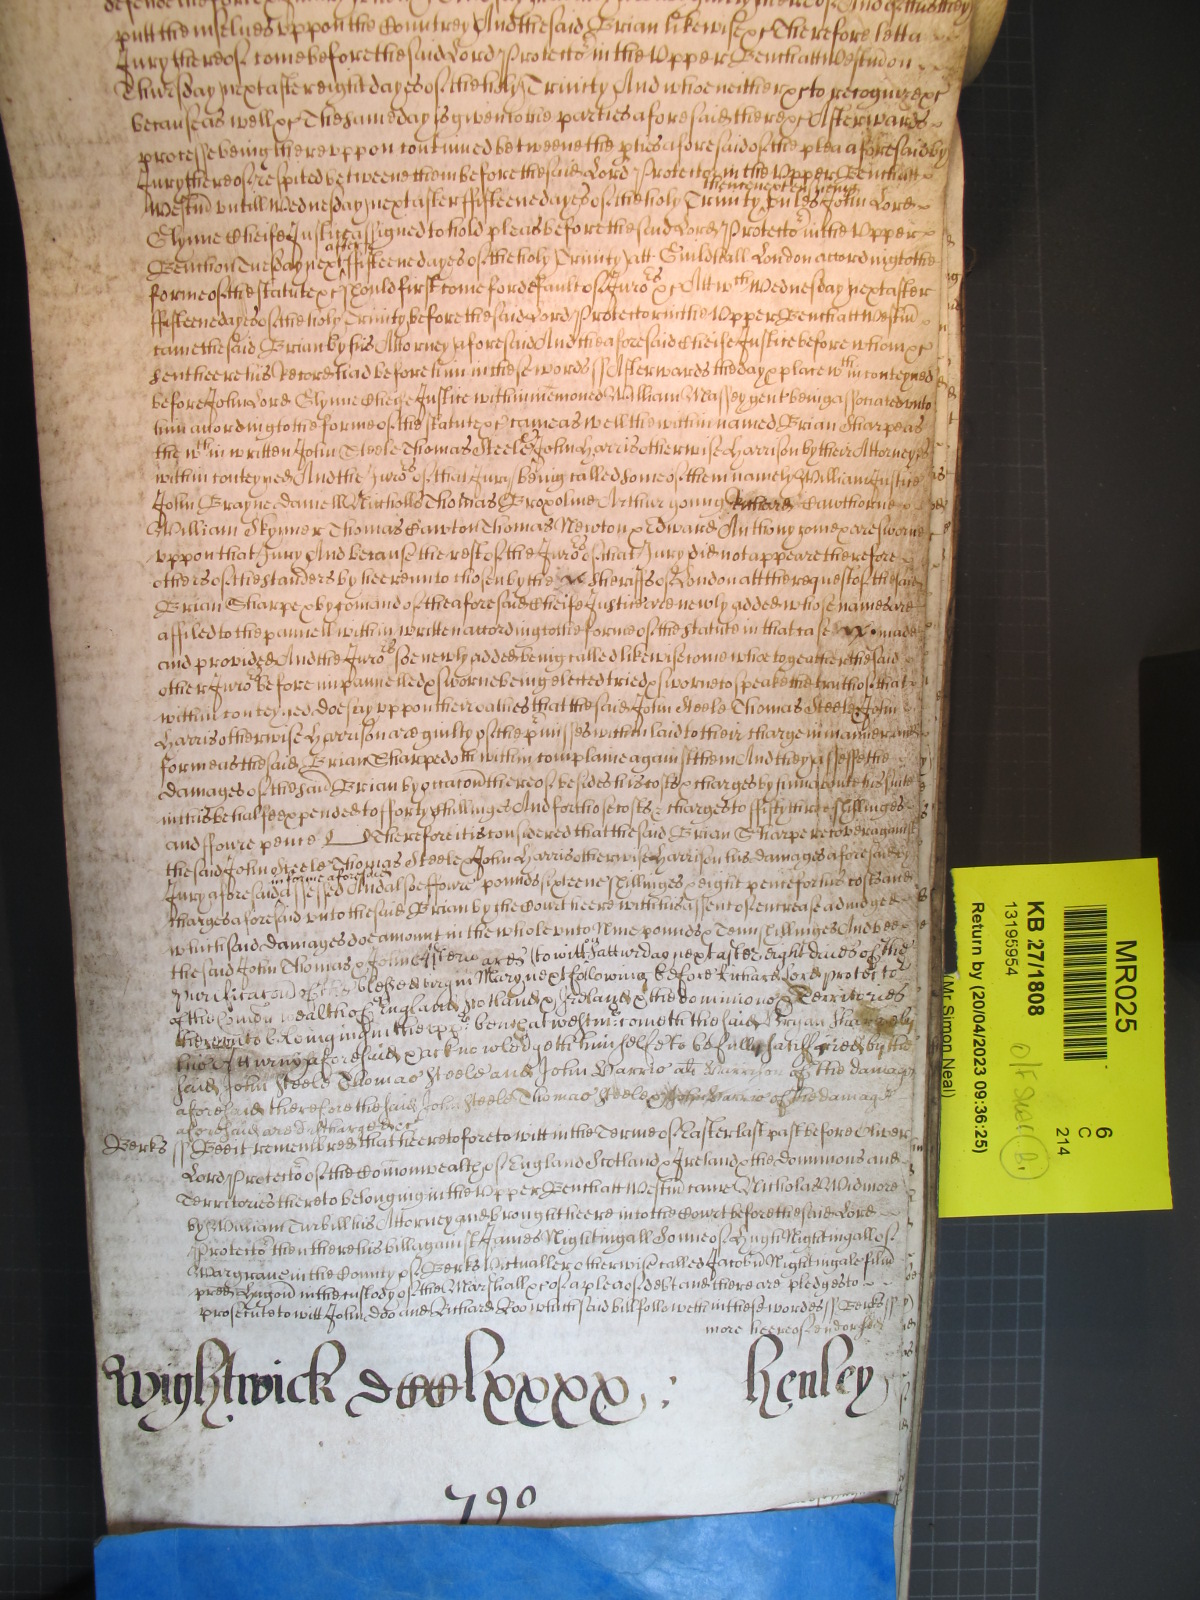 putt themselves uppon the Countrey And the said Brian likewise &c Therefore lett a
Jury thereof come before the said Lord Protector in the Upper Bench att Westm on
Thursday next after eight dayes of the holy Trinity And who neither &c to recognize &c
because as well &c The same day is given to the parties aforesaid there &c Afterwards
processe being thereuppon continued betweene the pties aforesaid of the plea aforesaid by
Jury thereof respited betweene them before the said Lord Protector in the Upper Bench att
Westm untill Wednesday next after fifteene dayes of the holy Trinity then next ensueing unles John Lord
Glynne Cheife Justice assigned to hold pleas before the said Lord Protector in the Upper
Bench on Tuesday next after fifteene dayes of the holy Trinity att Guildhall London according to the
forme of the statute &c should first come for default of Juro:rs &c Att w:ch Wednesday next after
fifteene dayes of the holy Trinity before the said Lord Protector in the Upper Bench att Westm
came the said Brian by his Attorney aforesaid And the aforesaid Cheife Justice before whom &c
sent heere his Record had before him in these words ss Afterwards the day & place w:th in conteyned
before John Lord Glynne Cheife Justice within menconed William Massey gent being associated unto
him according to the forme of the statute &c came as well the within named Brian Sharpe as
the w:th in written John Steele Thomas Steele & John Harris otherwise Harrison by their Attorneys
within conteyned And the Juro:rs of that Jury being called some of them namely William Justice
John Grayne Daniell Nicholls Thomas Arthur young Richard Cawthorne
William Skynner Thomas Cawton Thomas Newton & Edward Anthony come & are sworne
uppon that Jury And because the rest of the Juro:rs of that Jury did not appeare therefore
others of the standers by heereunto chosen by the Sheriffs of London att the request of the said
Brian Sharpe & by comand of the aforesaid Cheife Justice are newly added whose names are
affiled to the pannell within written according to the forme of the statute in that case made
and provided And the Juro:rs soe newly added being called likewise come whoe togeather the said
other Juro:rs before impannelled & sworne being elected tried & sworne to speake the truth of that
within conteyned, doe say uppon their oathes that the said John Steele Thomas Steele & John
Harris otherwise Harrison are guilty of the pmisses within laid to their charge in manner and
forme as the said Brian Sharpe doth within complaine against them And they assesse the
damages of the said Brian by occacon thereof besides his costs & charges by him aboute his suite
in this behalfe expended to forty shillinges And for those costs & charges to fifty three shillinges
and foure pence Therefore it is considered that the said Brian Sharpe recover against
the said John Steele Thomas Steele & John Harris otherwise Harrison his damages aforesaid by
Jury aforesaid in forme aforesaid assessed And alsoe foure pounds sixteene shillinges & eight pence for his costs and
charges aforesaid unto the said Brian by the Court heere with his assent of encrease adiudged
which said damages doe amount in the whole unto Nine pounds & Tenn shillinges And
the said John Thomas & John to witt on Satturday next after eight daies of the
Purificacon of the blessed virgin Mary next following before Richard Lord Protector
of the Comon wealth of England Scotland & Ireland & the dominions & Territories
thereunto belonging in the upp:r bench at westm: cometh the said Bryan Sharpe by
his Atturny aforesaid & acknowledgeth himselfe to be fully satisfyed by the
said John Steele Thomas Steele and John Harris als Harrison of the damag
aforesaid therefore the said John Steele Thomas Steele & John Harris of the damag
aforesaid are discharged &c
Berks ss Bee it remembred that heeretofore to witt in the Terme of Easter last past before Oliver
Lord Protector of the Comonwealth of England Scotland & Ireland & the dominions and
Territories thereto belonging in the Upper Bench att Westm came Nicholas Widmore
by William Turbill his Attorney and brought heere into the Court before the said Lord
Protector then there his bill against James Nightingall Sonne of Hugh Nightingall of
Wargrave in the County of Berks Victualler otherwise called Jacobu Nightingale filiu
pred Hugon in the custody of the Marshall &c of a plea of debt and there are pledges to
prosecute to witt John Doo and Richard Roo which said bill followeth in these wordes ss Berks ss
more heereof endorsed
Wightwick dccclxxxx : Henley
790
MR025
6
C
214
KB 27/1808
13195954
Return by (20/04/2023 09:36:25)
(Mr Simon Neal)